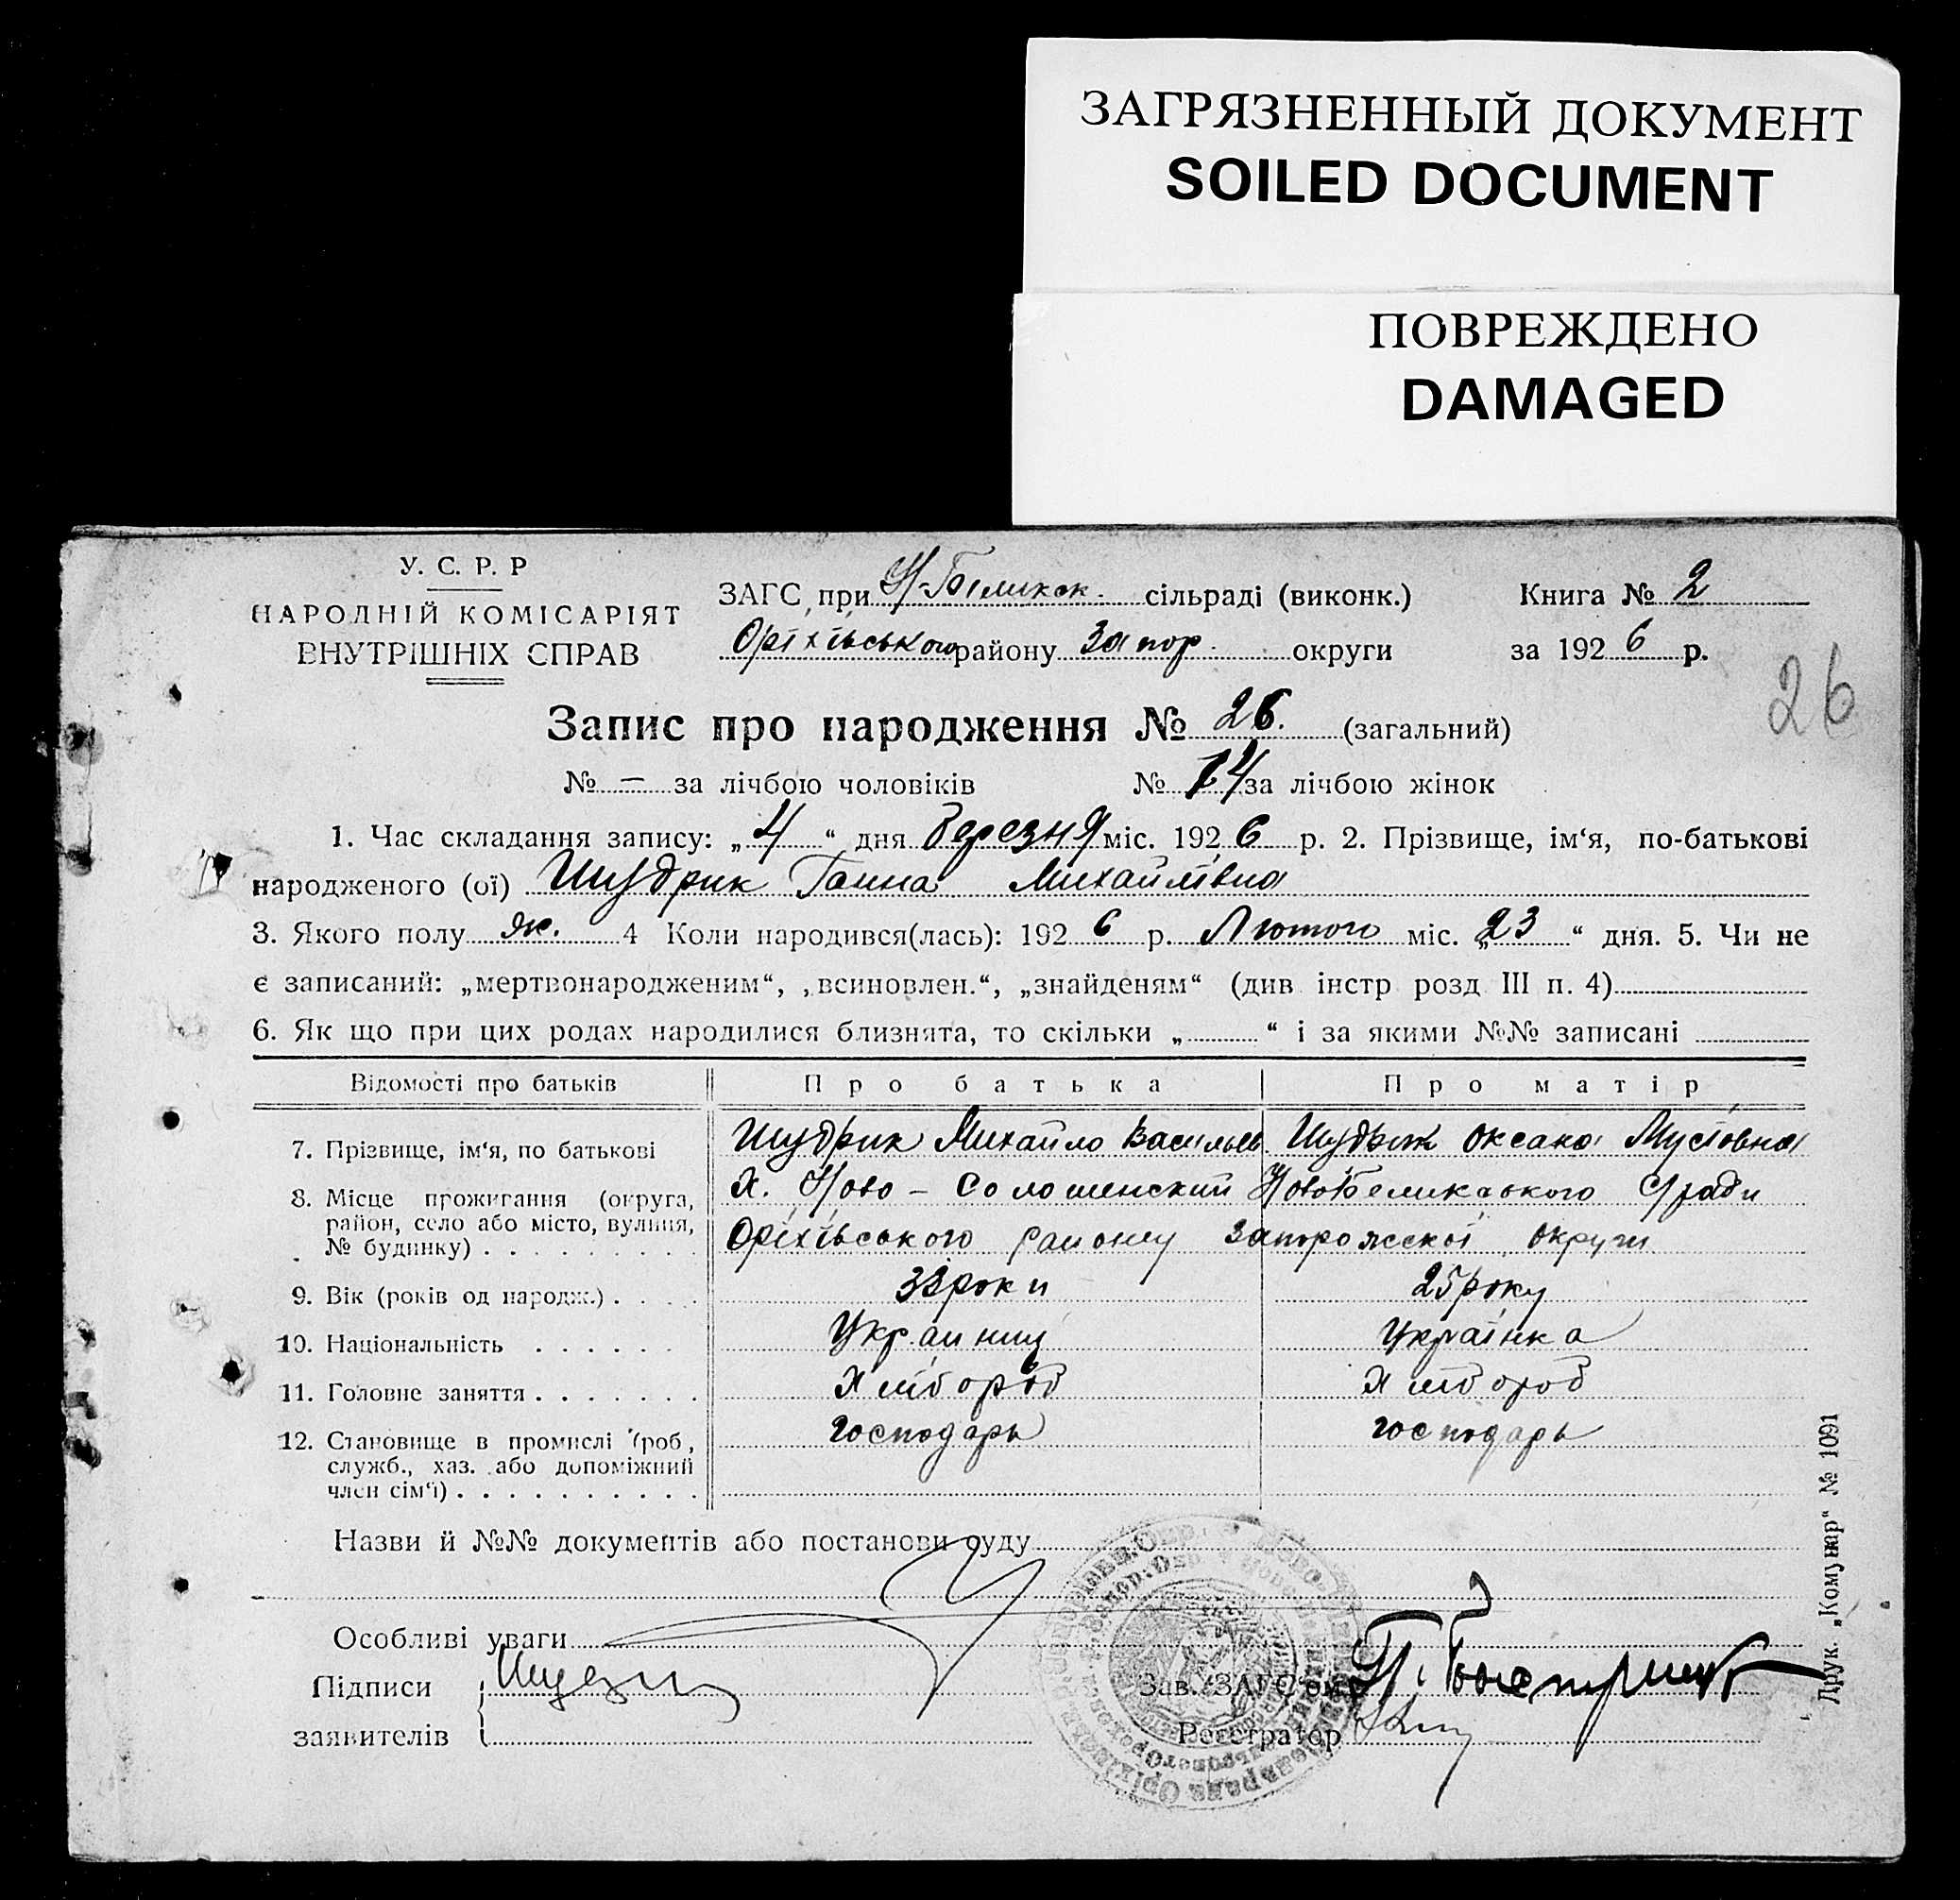 ЗАГРЯЗНЕННЫЙ ДОКУМЕНТ
SOILED DOCUMENT
ПОВРЕЖДЕНО
DAMAGED
У. С. Р. Р
НАРОДНІЙ КОМІСАРІЯТ
ВНУТРІШНІХ СПРАВ
ЗАГС при сільраді (виконк.)
Оріхівського району Запор. округи
Книга № 2
за 1926 р.
26
Запис про народження № 26. (загальний)
№ — за лічбою чоловіків № 14 за лічбою жінок
1. Час складання запису: „4“ дня Березня міс. 1926 р. 2. Прізвище, ім‘я, по-батькові
народженого (ої) Шудрик Ганна Михайлівна
3. Якого полу ж. 4 Коли народився(лась): 1926 р. Лютого міс. „23“ дня. 5. Чи не
є записаний: „мертвонародженим“, „всиновлен.“, „знайденям“ (див інстр розд III п. 4)
6. Як що при цих родах народилися близнята, то скільки „ “ і за якими №№ записані
Відомості про батьків Про батька Про матір
7. Прізвище, ім‘я, по батькові Шудрик Михайло Васильев Оксана
8. Місце прожигання (округа, район, село або місто, вулиця, № будинку)
Х. Ново-Солошенский
Оріхівського району Запорожскої округи
9. Вік (років од народж.) 33 роки 25 року
10. Національність Украинец Українка
11. Головне заняття Хлібороб Хлібороб
12. Становище в промислі (роб, служб., хаз. або допоміжний член сім‘ї) господарь господарь
Назви й №№ документів або постанови суду
Особливі уваги
Підписи
заявителів
Зав. ЗАГС‘ом
Регетратор
Друк. „Комунар“ № 1091